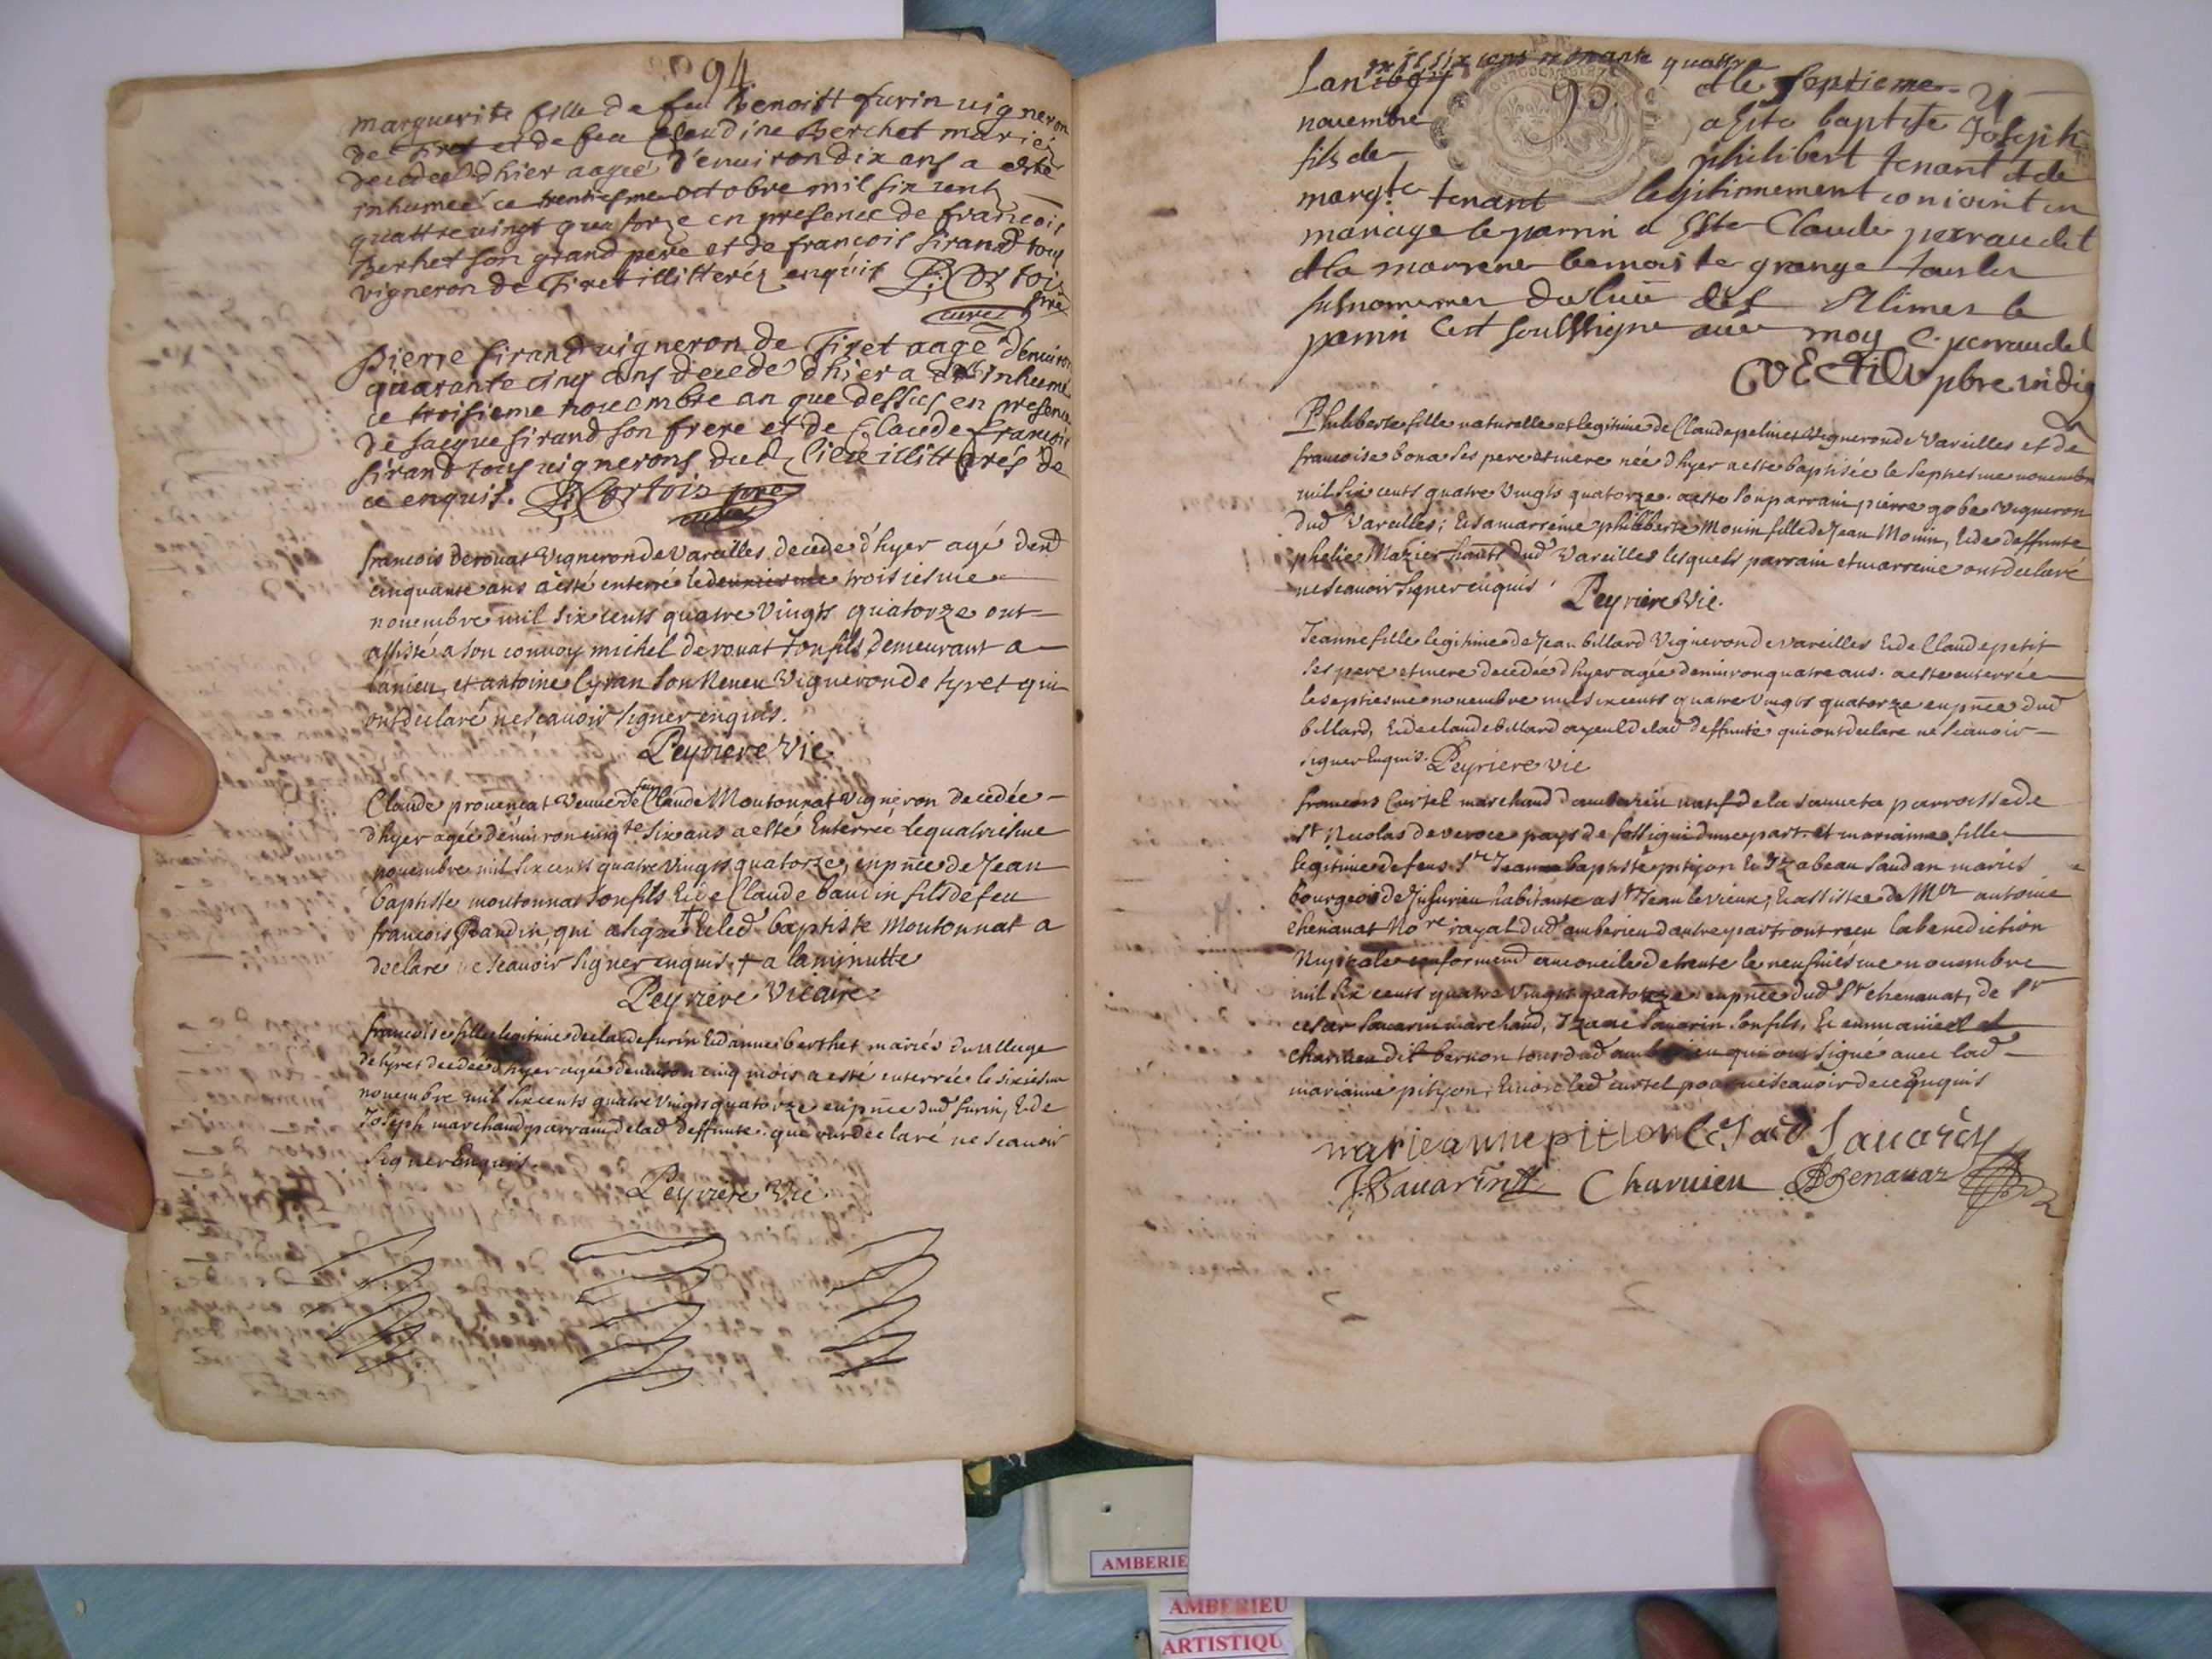 94
marguerite fille de feu benoistt furin vigneron
de Tiret et de feu Claudine Berchet mariés
decedeé d'hier aageé d'enuiron dix ans a esté
inhumeé ce trentiesme octobre mil six cent
quattre vingt quatorze en presence de francois
Berhet son grand pere et de francois sirand tous
vigneron de Tiret illitterés enquis P: Cortois
pre
curé
pierre sirand vigneron de Tiret aagé d'enuiron
quarante cinq ans decedé d'hier a esté inhumé
ce troisieme nouembre an que dessus en presence
de Jacque sirand son frere et de Claude francois
sirand tous vignerons dud lieu illitterés de
ce enquis. P: Cortois pre
curé
francois derouat Vigneron de Vareilles decedé d'hyer agé denv
cinquante ans a esté enterré le deuxiesme troisiesme
nouembre mil six cents quatre Vingts quatorze ont
assisté a son conuoy michel derouat son fils demeurant a
lanieu, et antoine Cyran son Neueu Vigneron de tyret qui
ont declaré ne scauoir signer enquis.
Peyriere Vic
Claude prouencat Veuue de feu Claude Moutonnat Vigneron decedée
d'hyer agée denuiron cinqte six ans a esté Enterrée le quatriesme
nouembre mil six cents quatre Vingts quatorze, en pnce de Jean
baptiste moutonnat son fils Et de Claude baudin fils de feu
francois Baudin, qui a signé + le led baptiste Moutonnat a
declaré ne scauoir signer enquis + a la minutte
Peyriere Vicaire
francoise fille legitime de claude furin Et danne berthet mariés du village
de tyret decedée d'hyer agée denuiron cinq mois a esté enterrée le sixiesme
nouembre mil six cents quatre Vingts quatorze en pnce dud furin, Et de
Joseph marchand parrain de lad deffunte. qui ont declaré ne scauoir
signer Enquis.
Peyriere Vic
mil six cens nonante quattre
Lan 1694 95. & le septieme
nouembre a este baptise Joseph
fils de philibert tenant & de
margte tenant legitimement conioint en
mariage le parrin a este Claude perraudet
& la marrene benoiste grange tous les
susnommes du lieu des Alimes le
parrin cest soussigne auec moy C. perraudel
pbre indig
Philiberte fille naturelle et legitime de Claude pelinet Vigneron de Vareilles et de
francoise bona ses pere et mere née d'hyer a esté baptisée le septiesme nouembre
mil six cents quatre Vingts quatorze. a esté son parrain pierre gobe Vigneron
dud Vareilles; Et sa marreine philiberte Monin fille de Jean Monin, Et de deffunte
phelie Mazier dud Vareilles lesquels parrain et marreine ont declaré
ne scauoir signer enquis. Peyriere Vic.
Jeanne fille legitime de Jean billard Vigneron de Vareilles Et de Claude petit
ses pere et mere decedée d'hyer agée denuiron quatre ans. a esté enterrée
le septiesme nouembre mil six cents quatre Vingts quatorze en pnce dud
billard, Et de claude billard ayeul de lad deffunte qui ont declaré ne scauoir
signer Enquis. Peyriere Vic
francois Curtel marchand d'amberieu natif de la parroisse de
St Nicolas de veroce pays de fossigni d'une part. et marianne fille
legitime de feus Sr Jean baptiste pityon Et Izabeau mariés
bourgeois de Jusurieu habitante a St Jean le vieux, Et assistée de Mre antoine
chenauat Nore royal dud amberieu d'autre part ont receu la benediction
Nuptiale conformemt au concile de trente le neufuiesme nouembre
mil six cents quatre Vingts quatorze en pnce dud Sr chenauat, de Sr
cesar sauarin marchand, sauarin son fils, Et
charuieu dit bernon tous dud amberieu qui ont signé auec lad
marianne pityon, Et non led curtel pour ne scauoir de ce Enquis
marieanne pition Sauarin
Sauarin Charuieu Chenauaz
AMBERIE
AMBERIEU
ARTISTIQU